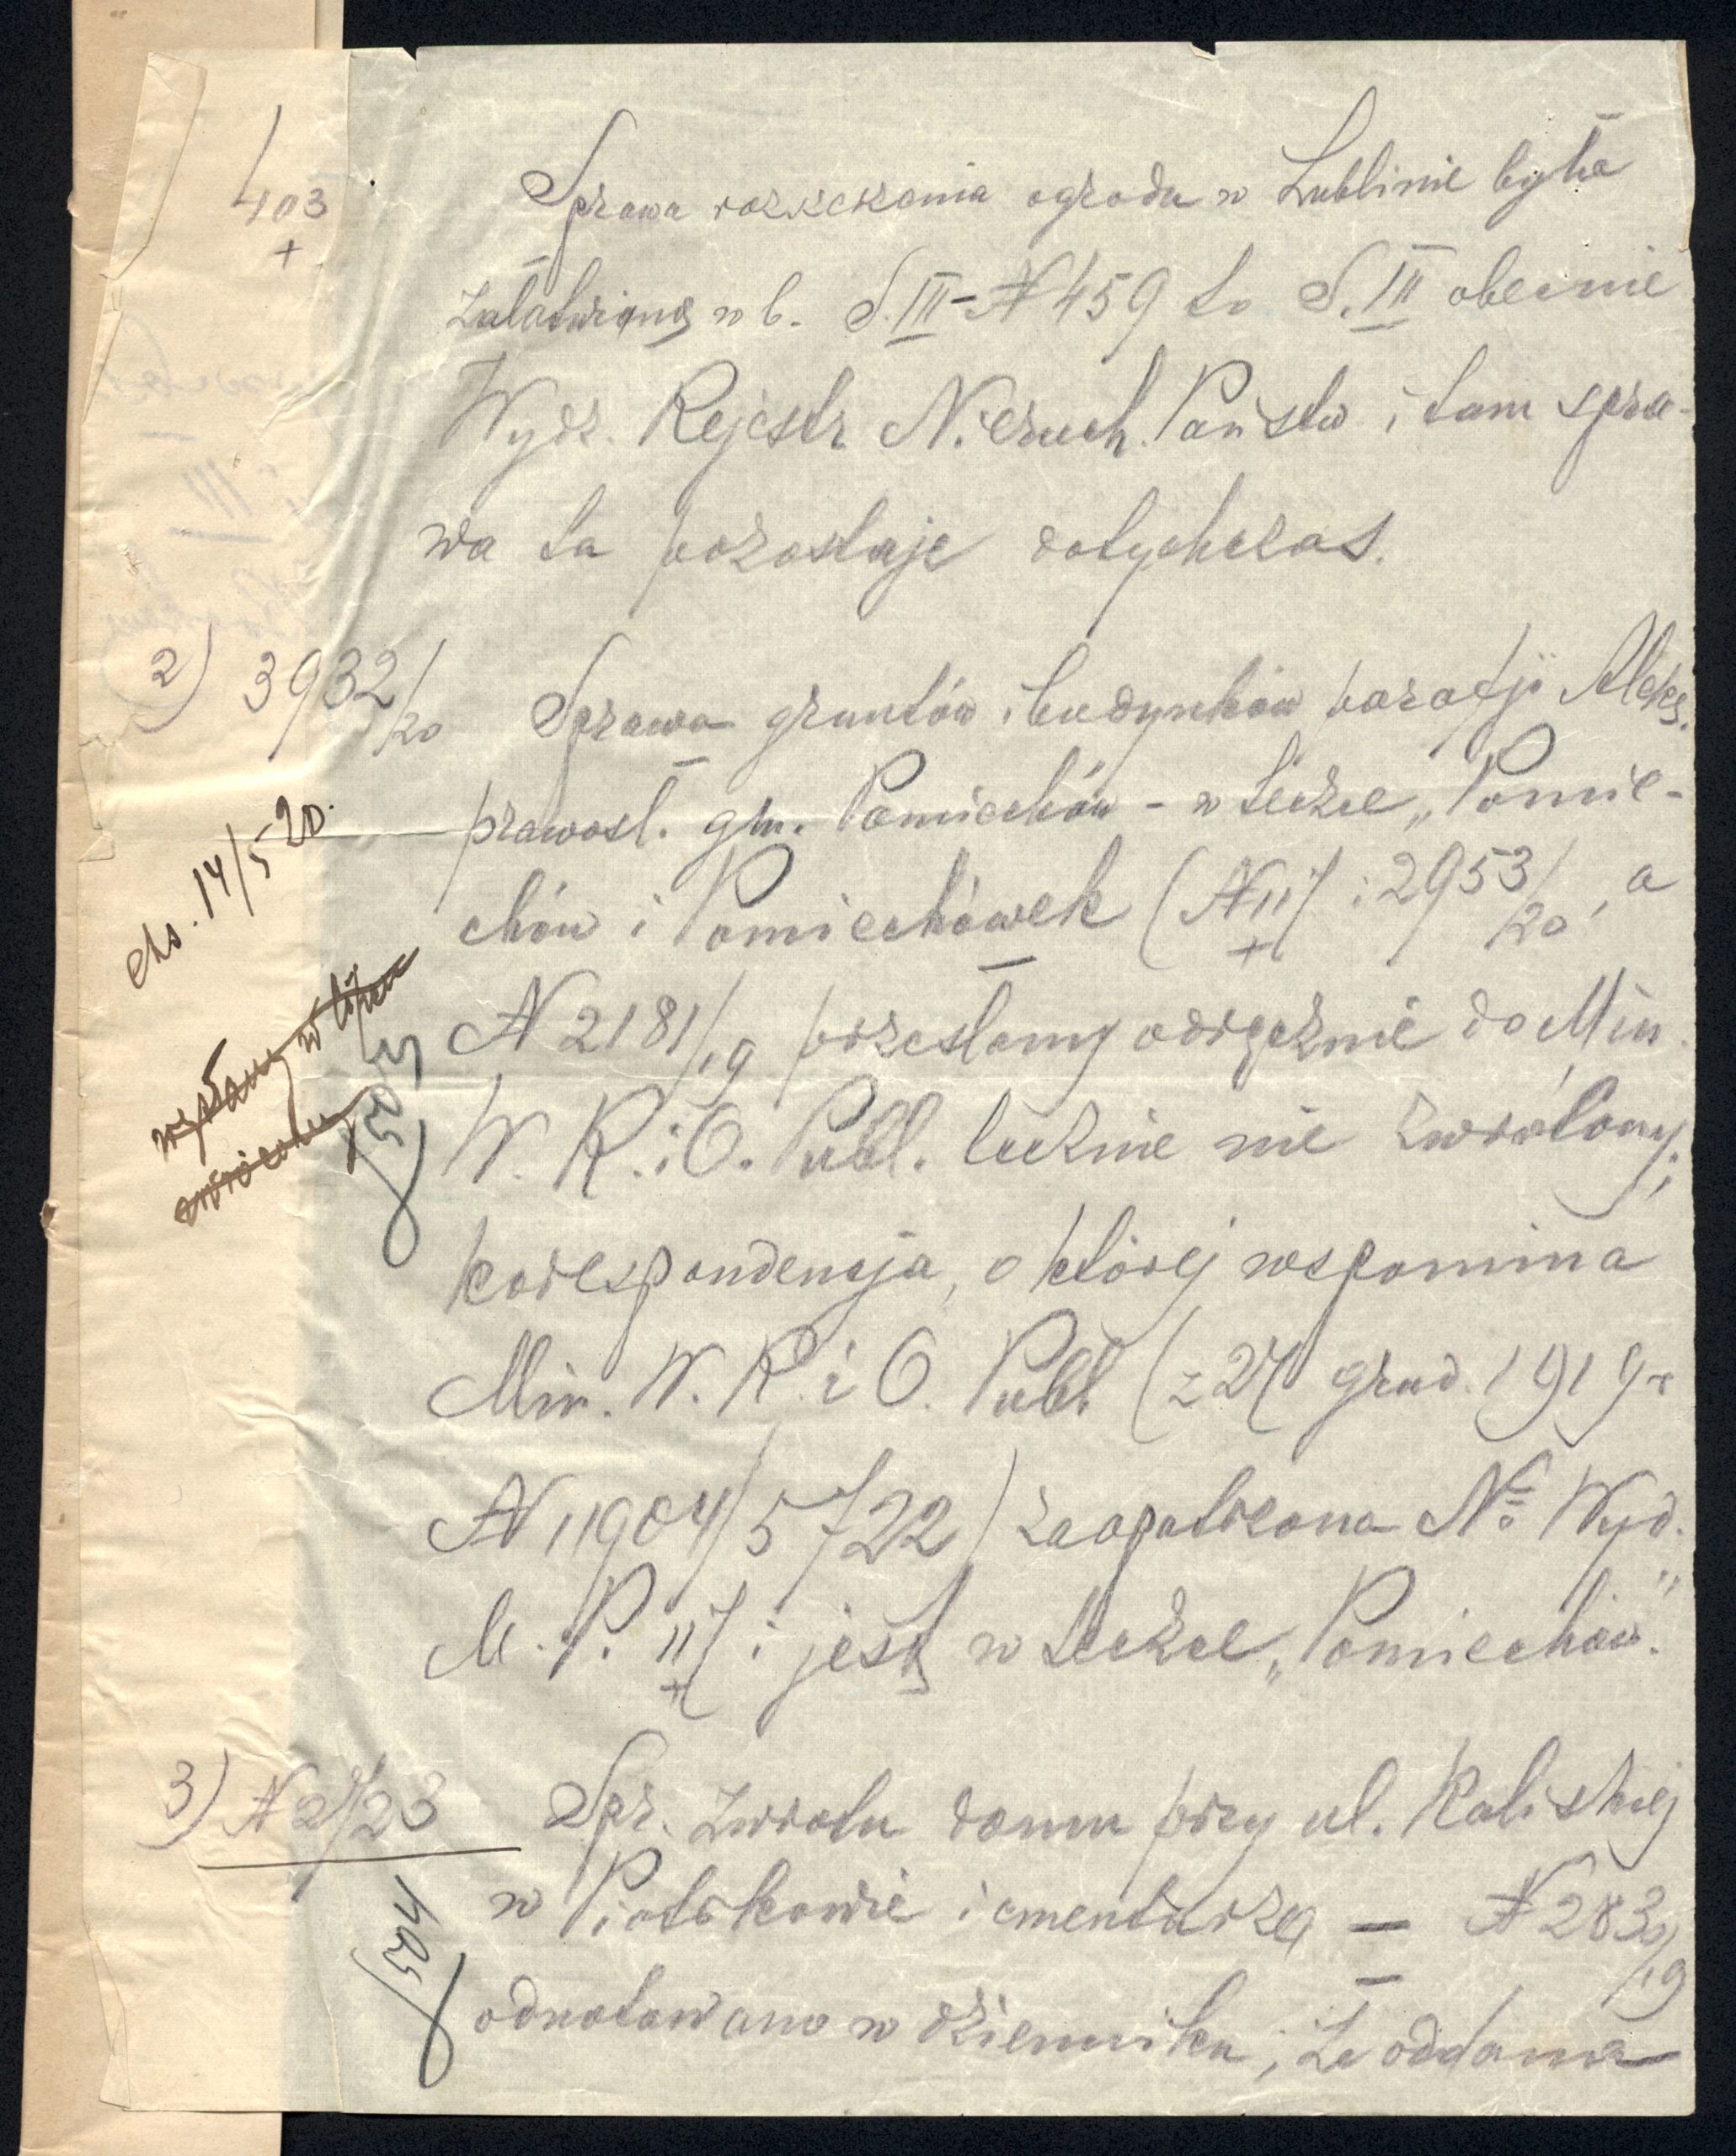 403
+
Sprawa roszczenia ogrodu w Lublinie była
załatwiona w b. S.III-N459 to S.III obecnie
Wydz. Rejestr Nieruch. Państw i tam spra-
wa ta pozostaje dotychczas.
2) 3932/20 Sprawa gruntów i budynków parafji Aleks.
prawosł. gm. Pomiechów - w teczce „Pomie-
chów i Pomiechówek (N II/+ i 2953/20, a
eks. 14/5 20.
N 2181/19 przesłany odręcznie do Min.
wysłany w lipcu
W. R. i O. Publ. tecznie nie zwrócony;
503
korespondencja, o której wspomina
Min. W. R. i O. Publ (z 27 grud. 1919 r
N 11904/5722) zaopatrzona № Wyd.
M. P. II/+ i jest w teczce „Pomiechów".
3) N 2/23 Spr. zwrotu domu przy ul. Kaliskiej
w Piotrkowie i cmentarza — N 2830/19
504
odnotowano w dzienniku, że oddana